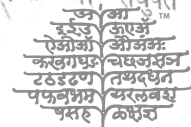 अ आ
इईउ ऊएअ
ऐओओ औअंअः
कखगघङ चछजझञ
टठडढण तथदधन
पफबभम यरलवश
षसह ळक्षज्ञ
TM